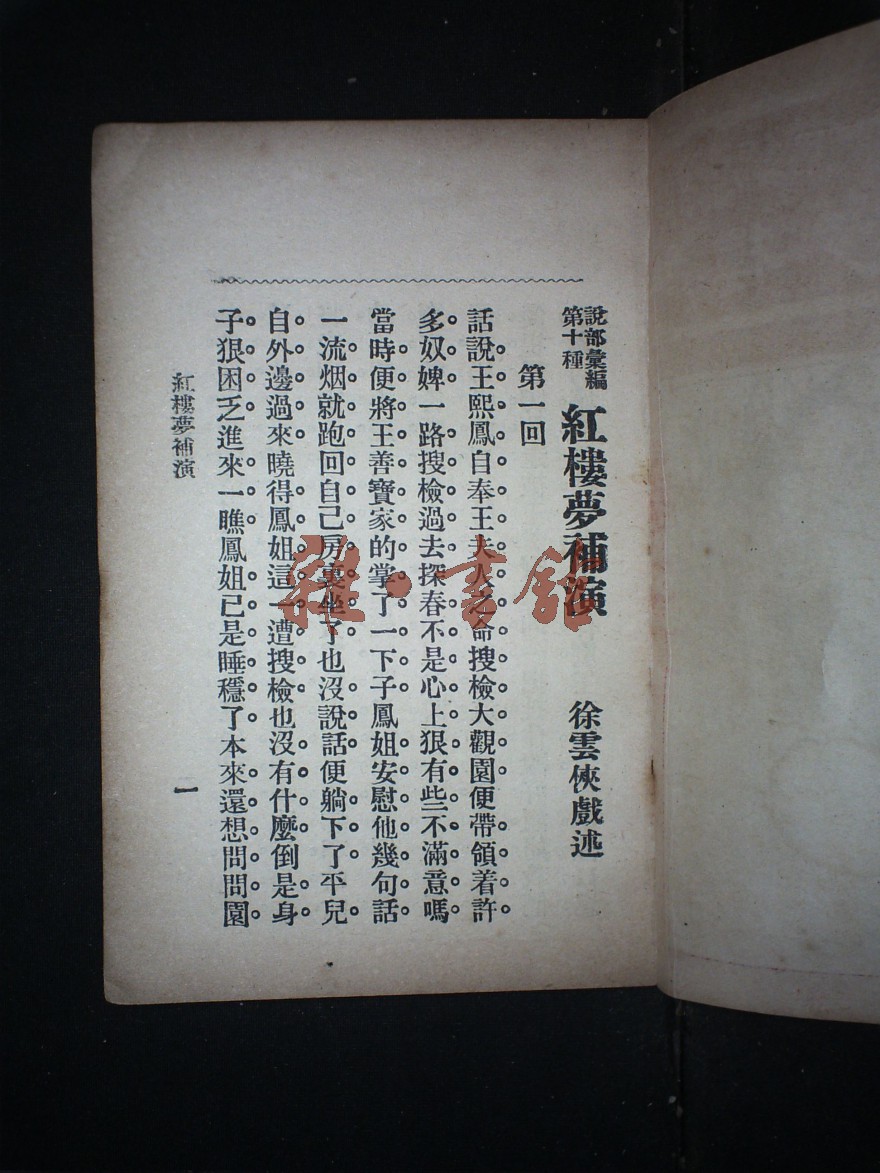 說部彙編
第十種
紅樓夢補演
徐雲俠戲述
第一回
話說王熙鳳自奉王夫人之命搜檢大觀園便帶領着許
多奴婢一路搜檢過去探春不是心上狠有些不滿意嗎
當時便將王善寶家的掌了一下子鳳姐安慰他幾句話
一流烟就跑回自己房裏坐了也沒說話便躺下了平兒
自外邊過來曉得鳳姐這一遭搜檢也沒有什麼倒是身
子狠困乏進來一瞧鳳姐已是睡穩了本來還想問問園
紅樓夢補演
一
雜·書館